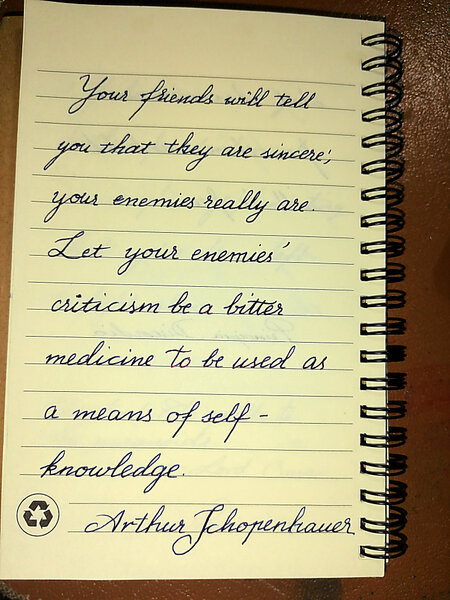 Your friends will tell
you that they are sincere;
your enemies really are.
Let your enemies'
criticism be a bitter
medicine to be used as
a means of self-
knowledge.
Arthur Schopenhauer